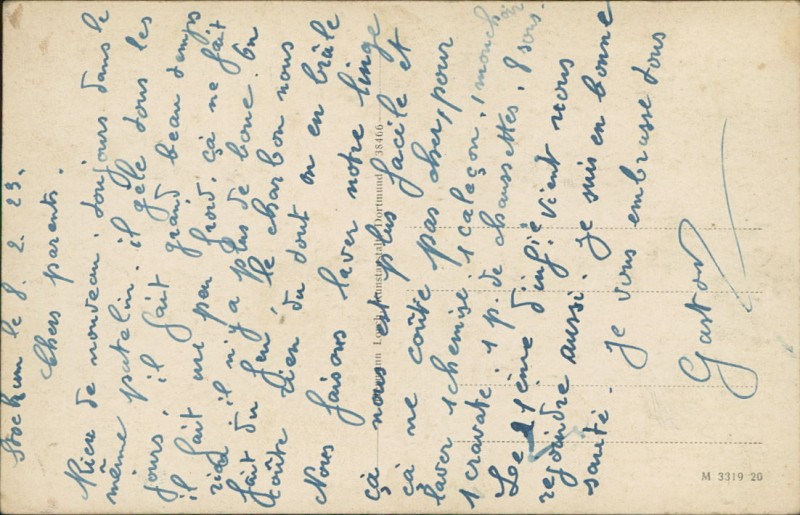 Stockum le 8. 2. 23.
Chers parents.
Rien de nouveau. toujours dans le
même patelin. il gèle tous les
jours. il fait grand beau temps
il fait un peu froid. çà ne fait
rien il n'y a plus de boue. On
fait du feu le charbon nous
coûte rien du tout on en brûle
Nous faisons laver notre linge
çà nous est plus facile et
çà ne coûte pas cher, pour
laver 1 chemise, 1 caleçon, 1 mouchoir
1 cravate. 1 p. de chaussettes. 8 sous.
Le 21ème d'inf.ie vient nous
rejoindre aussi. je suis en bonne
santé. je vous embrasse tous
Gaston
Kunstanstalt, Dortmund 38466
M 3319 20